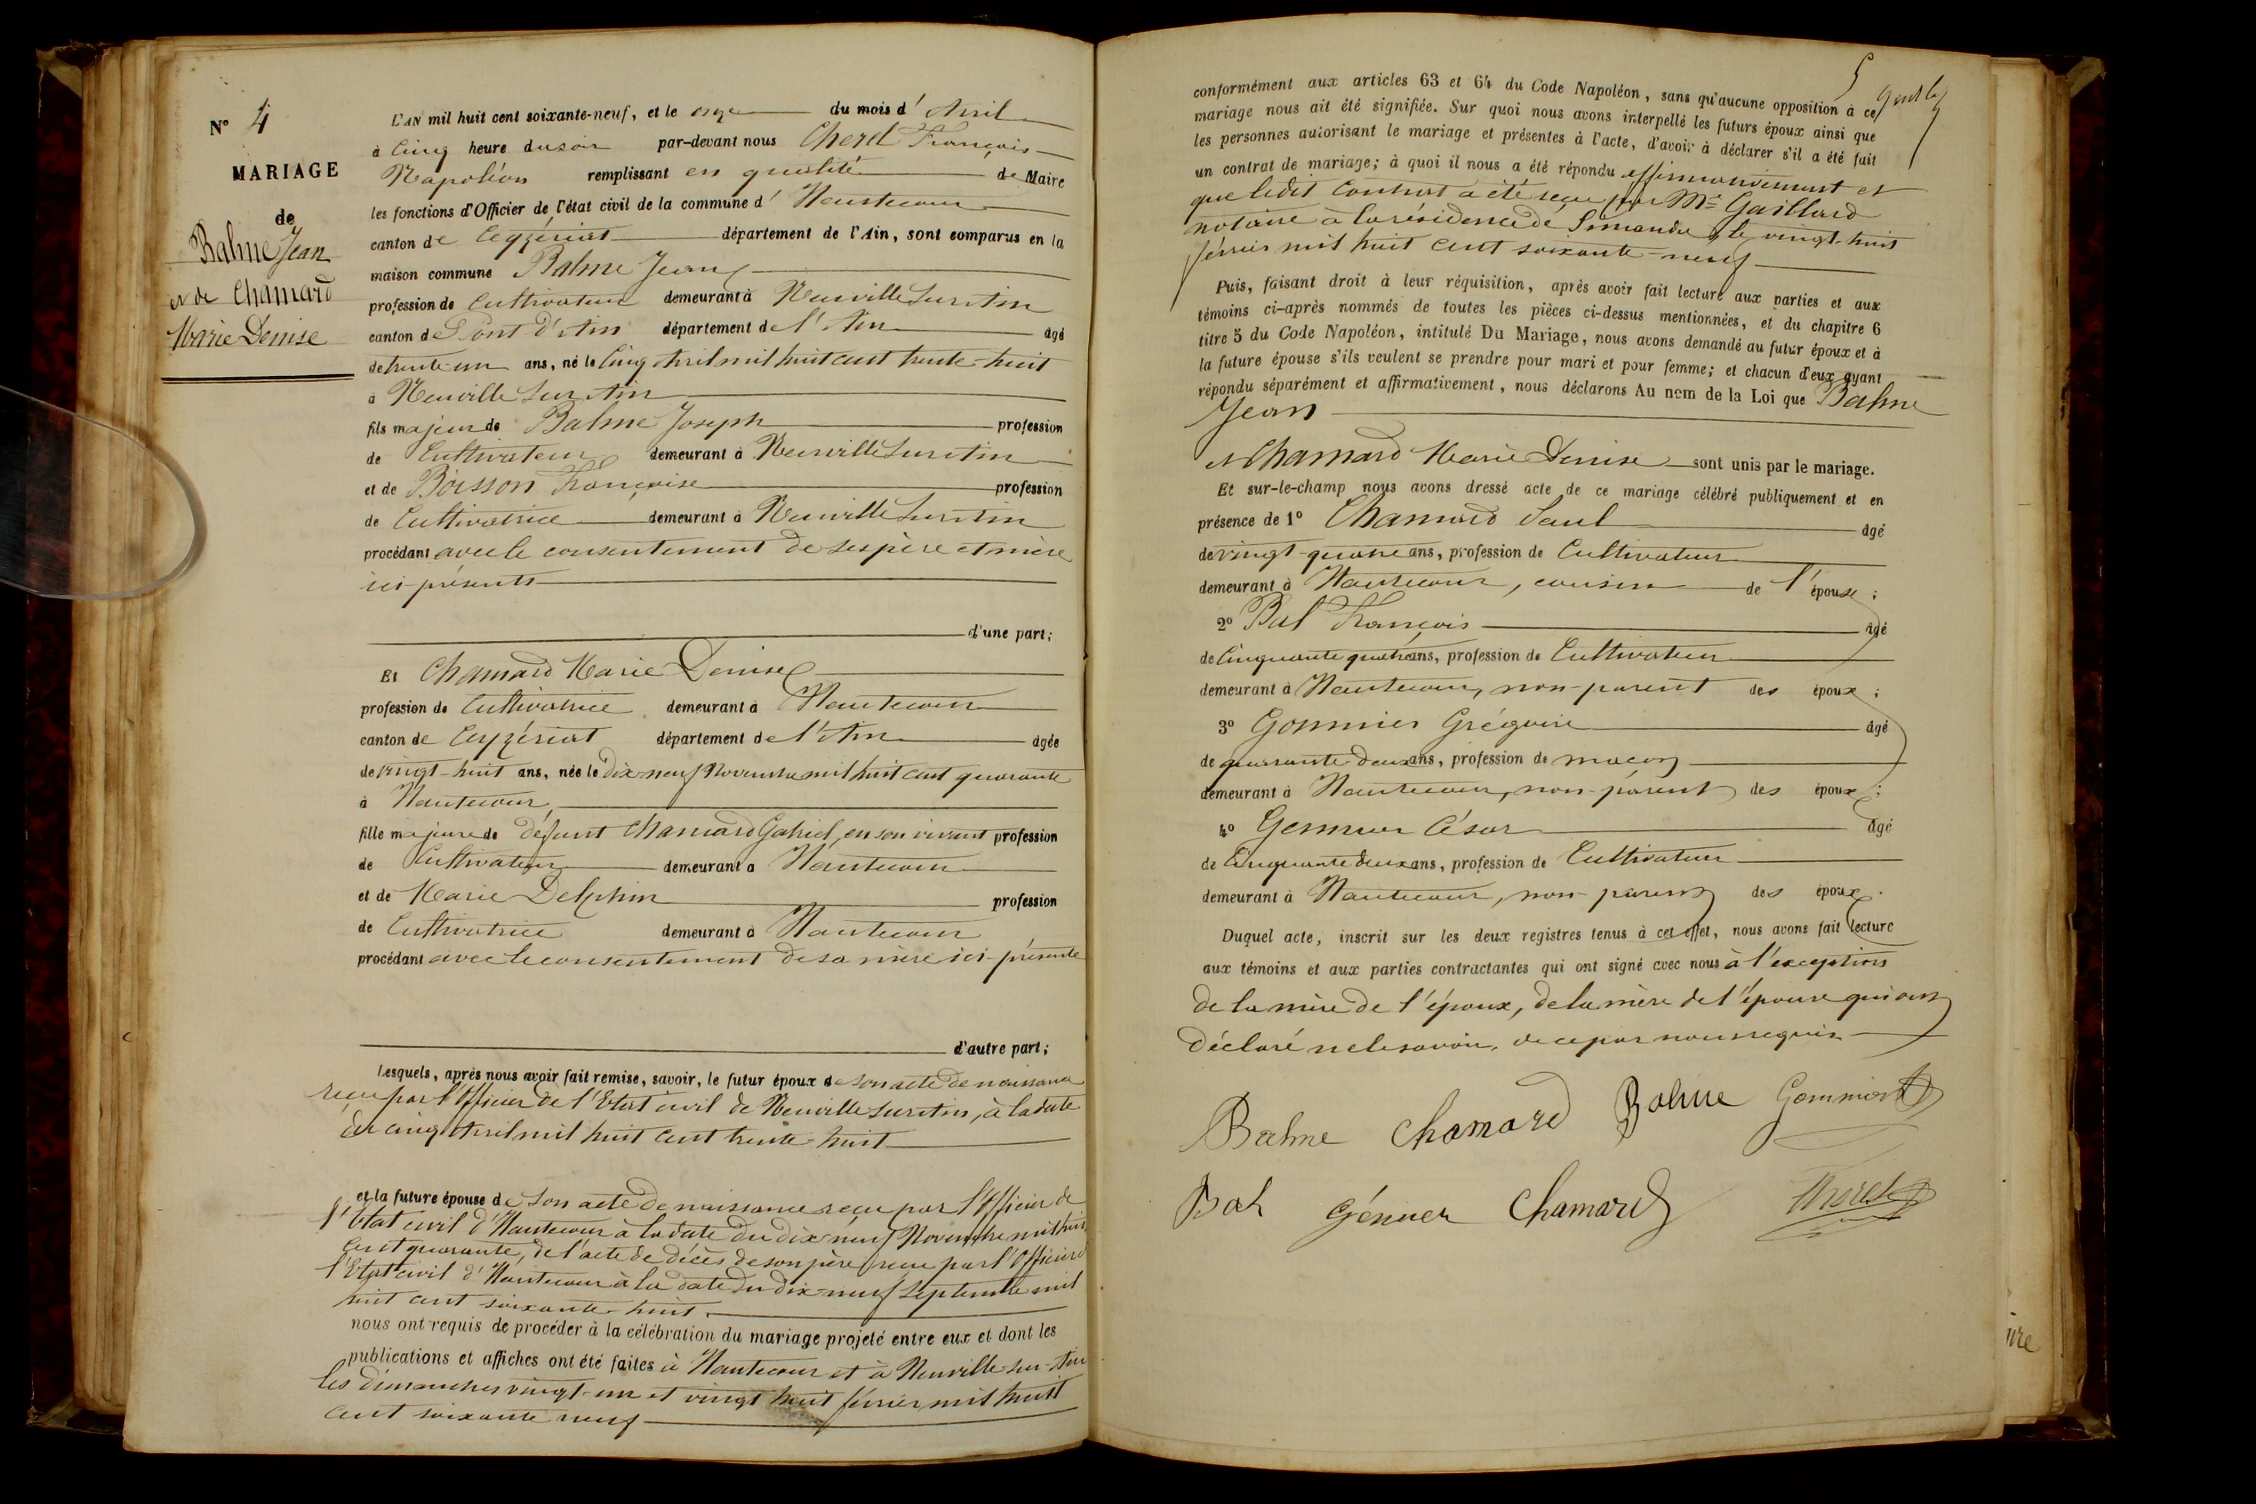 N° 4
MARIAGE
de
Balme Jean
et de Chamard
Marie Denise
L'AN mil huit cent soixante-neuf, et le onze du mois d'Avril
à cinq heure du soir par-devant nous Cherel François
Napoléon remplissant en qualité de Maire
les fonctions d'Officier de l'état civil de la commune d'Hautecour
canton de Ceyzériat département de l'Ain, sont comparus en la
maison commune Balme Jean
profession de Cultivateur demeurant à Neuville sur Ain
canton de Pont d'Ain département de l'Ain âgé
de trente-un ans, né le cinq Avril mil huit cent trente-huit
à Neuville sur Ain
fils majeur de Balme Joseph profession
de Cultivateur demeurant à Neuville sur Ain
et de Boisson Françoise profession
de Cultivatrice demeurant à Neuville sur Ain
procédant avec le consentement de ses père et mère
ici-présents
d'une part;
Et Chamard Marie Denise
profession de Cultivatrice demeurant à Hautecour
canton de Ceyzériat département de l'Ain âgée
de vingt-huit ans, née le dix-neuf Novembre mil huit cent quarante
à Hautecour
fille majeure de défunt Chamard Gabriel, en son vivant profession
de Cultivateur demeurant à Hautecour
et de Marie Delphin profession
de Cultivatrice demeurant à Hautecour
procédant avec le consentement de sa mère ici-présente
d'autre part;
Lesquels, après nous avoir fait remise, savoir, le futur époux de son acte de naissance
reçu par l'Officier de l'Etat civil de Neuville sur Ain, à la date
du cinq Avril mil huit cent trente-huit
et la future épouse de son acte de naissance reçu par l'Officier de
l'Etat civil d'Hautecour à la date du dix-neuf Novembre mil huit
cent quarante, de l'acte de décès de son père reçu par l'Officier de
l'Etat civil d'Hautecour à la date du dix-neuf Septembre mil
huit cent soixante-huit.
nous ont requis de procéder à la célébration du mariage projeté entre eux et dont les
publications et affiches ont été faites à Hautecour et à Neuville-sur-Ain
les dimanches vingt-un et vingt huit février mil huit
cent soixante neuf
5
conformément aux articles 63 et 64 du Code Napoléon, sans qu'aucune opposition à ce
mariage nous ait été signifiée. Sur quoi nous avons interpellé les futurs époux ainsi que
les personnes autorisant le mariage et présentes à l'acte, d'avoir à déclarer s'il a été fait
un contrat de mariage; à quoi il nous a été répondu affirmativement et
que ledit Contrat a été reçu par Me Gaillard
notaire à la résidence de Simandre, le vingt-huit
février mil huit cent soixante-neuf
Puis, faisant droit à leur réquisition, après avoir fait lecture aux parties et aux
témoins ci-après nommés de toutes les pièces ci-dessus mentionnées, et du chapitre 6
titre 5 du Code Napoléon, intitulé Du Mariage, nous avons demandé au futur époux et à
la future épouse s'ils veulent se prendre pour mari et pour femme; et chacun d'eux ayant
répondu séparément et affirmativement, nous déclarons Au nom de la Loi que Balme
Jean
et Chamard Marie Denise sont unis par le mariage.
Et sur-le-champ nous avons dressé acte de ce mariage célébré publiquement et en
présence de 1° Chamard Paul âgé
de vingt-quatre ans, profession de Cultivateur
demeurant à Hautecour, cousin de l'épouse;
2° Bal François âgé
de Cinquante quatre ans, profession de Cultivateur
demeurant à Hautecour, non-parent des époux;
3° Gommier Grégoire âgé
de quarante deux ans, profession de maçon
demeurant à Hautecour, non-parent des époux;
4° Genmier César âgé
de Cinquante deux ans, profession de Cultivateur
demeurant à Hautecour, non-parent des époux.
Duquel acte, inscrit sur les deux registres tenus à cet effet, nous avons fait lecture
aux témoins et aux parties contractantes qui ont signé avec nous à l'exception
de la mère de l'époux, de la mère de l'épouse qui ont
déclaré ne le savoir, de ce par nous requis
Balme Chamard Balme Gommier
Bal Génier Chamard Cherel